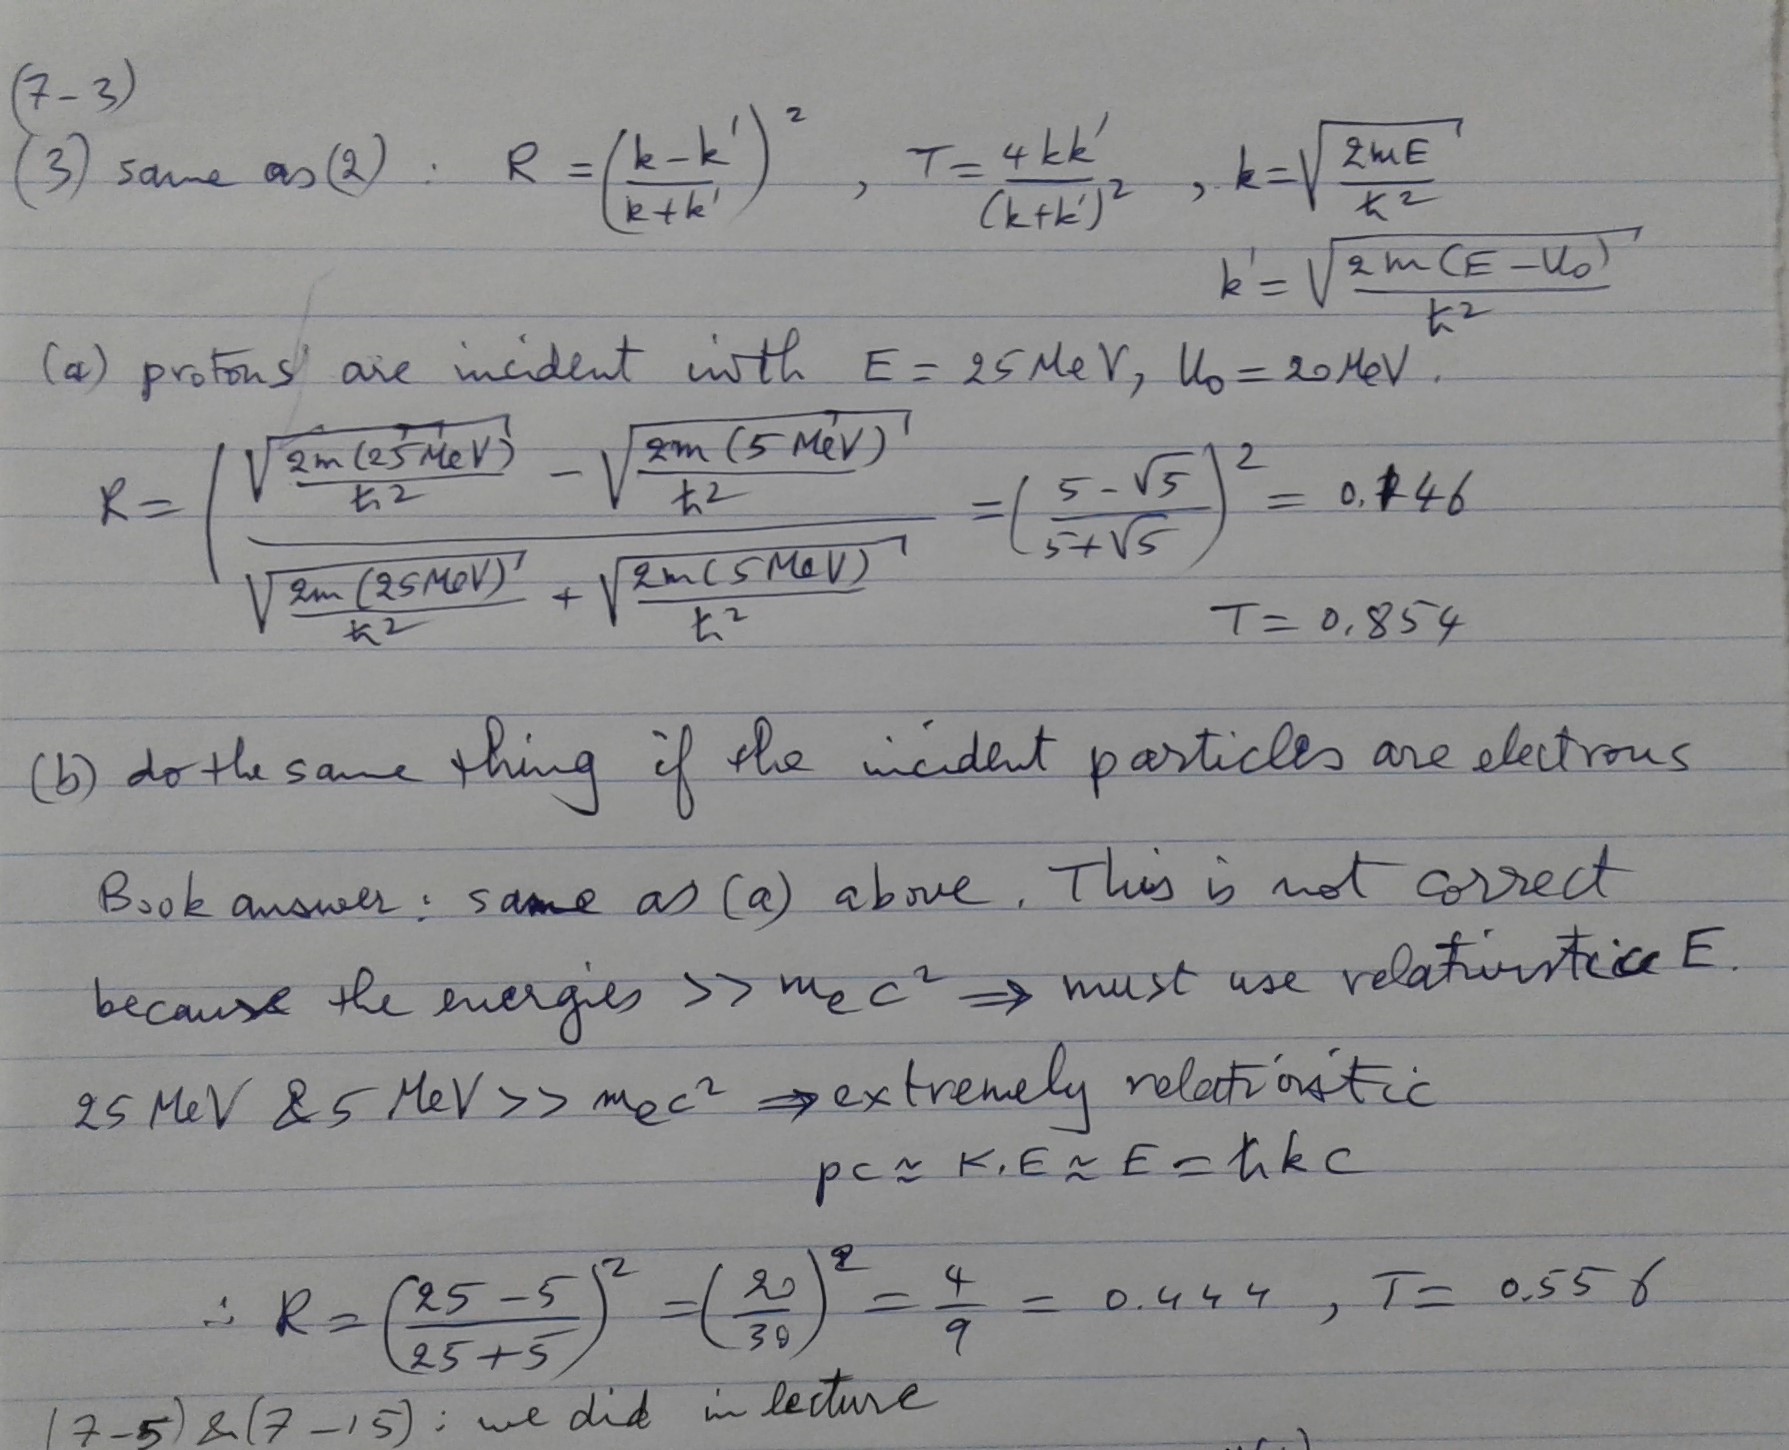 (7-3)
(3) same as (2) : R = ((k-k')/(k+k'))², T = 4kk'/(k+k')², k = √(2mE/ħ²)
k' = √(2m(E-U₀)/ħ²)
(a) protons are incident with E = 25 MeV, U₀ = 20 MeV.
R = ((√(2m(25 MeV)/ħ²) - √(2m(5 MeV)/ħ²))/(√(2m(25 MeV)/ħ²) + √(2m(5 MeV)/ħ²)) = ((5-√5)/(5+√5))² = 0.146
T = 0.854
(b) do the same thing if the incident particles are electrons
Book answer : same as (a) above. This is not correct
because the energies >> mₑc² ⇒ must use relativistic E.
25 MeV & 5 MeV >> mₑc² ⇒ extremely relativistic
pc ≃ K.E ≃ E = ħkc
∴ R = ((25-5)/(25+5))² = (20/30)² = 4/9 = 0.444, T = 0.556
(7-5) & (7-15) : we did in lecture